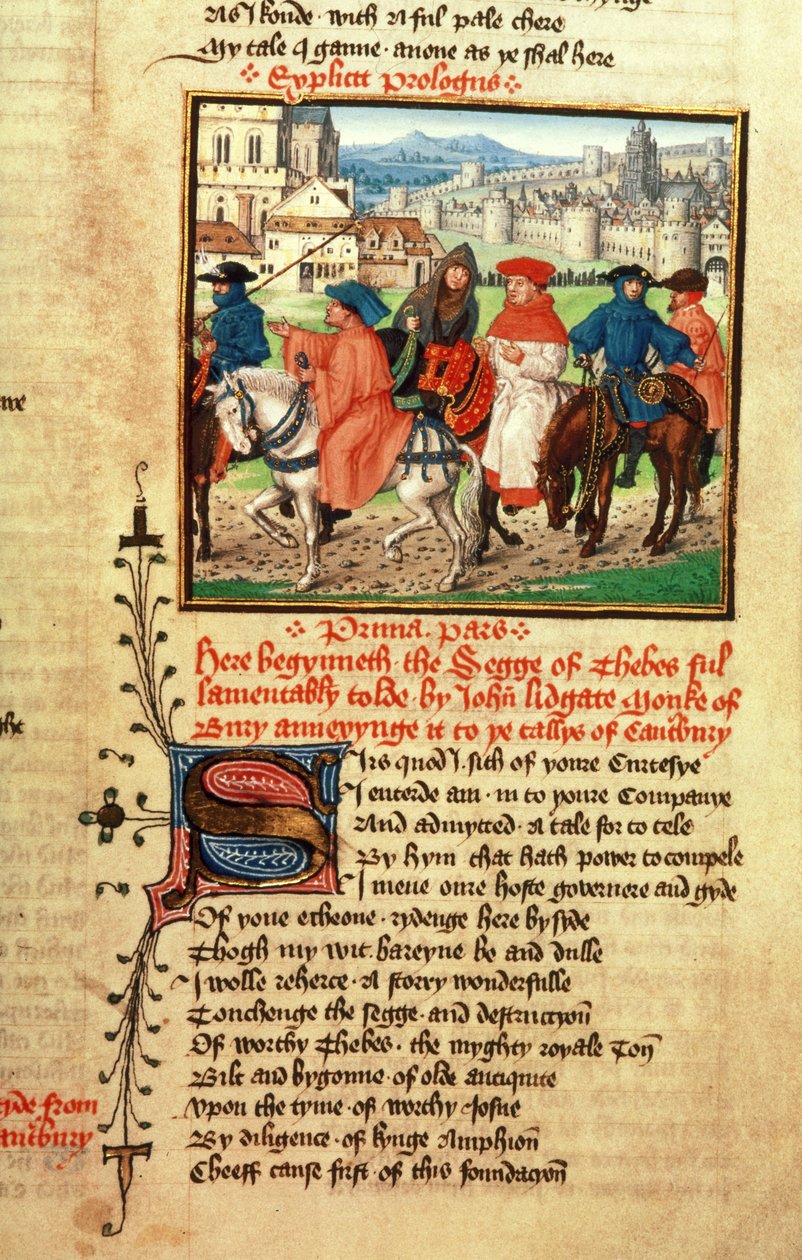 As I koude · with A ful pale chere
My tale I ganne · anone as ye shal here
Explicit Prologus
Prima · pars
Here begynneth · the Segge of Thebes ful
lamentably tolde · by John lidgate Monke of
Bury annexynge it to þe tallys of Cantbury
Sirs quod I · sith of youre Curtesye
I enterde am · in to youre Companye
And admytted · A tale for to tele
By hym that hath power to compele
I mene oure hoste governere and gyde
Of youe echeone · rydenge here by syde
Thogh my wit · bareyne be and dulle
I wolle reherce · A storry wonderfulle
Touchenge the segge · and destructyon
Of worthy Thebes · the myghty royale Ton
Bilt and bygonne · of olde antiquite
Vpon the tyme · of worthy Josue
By diligence · of kynge Amphion
Cheeff cause first · of this foundacyon
from